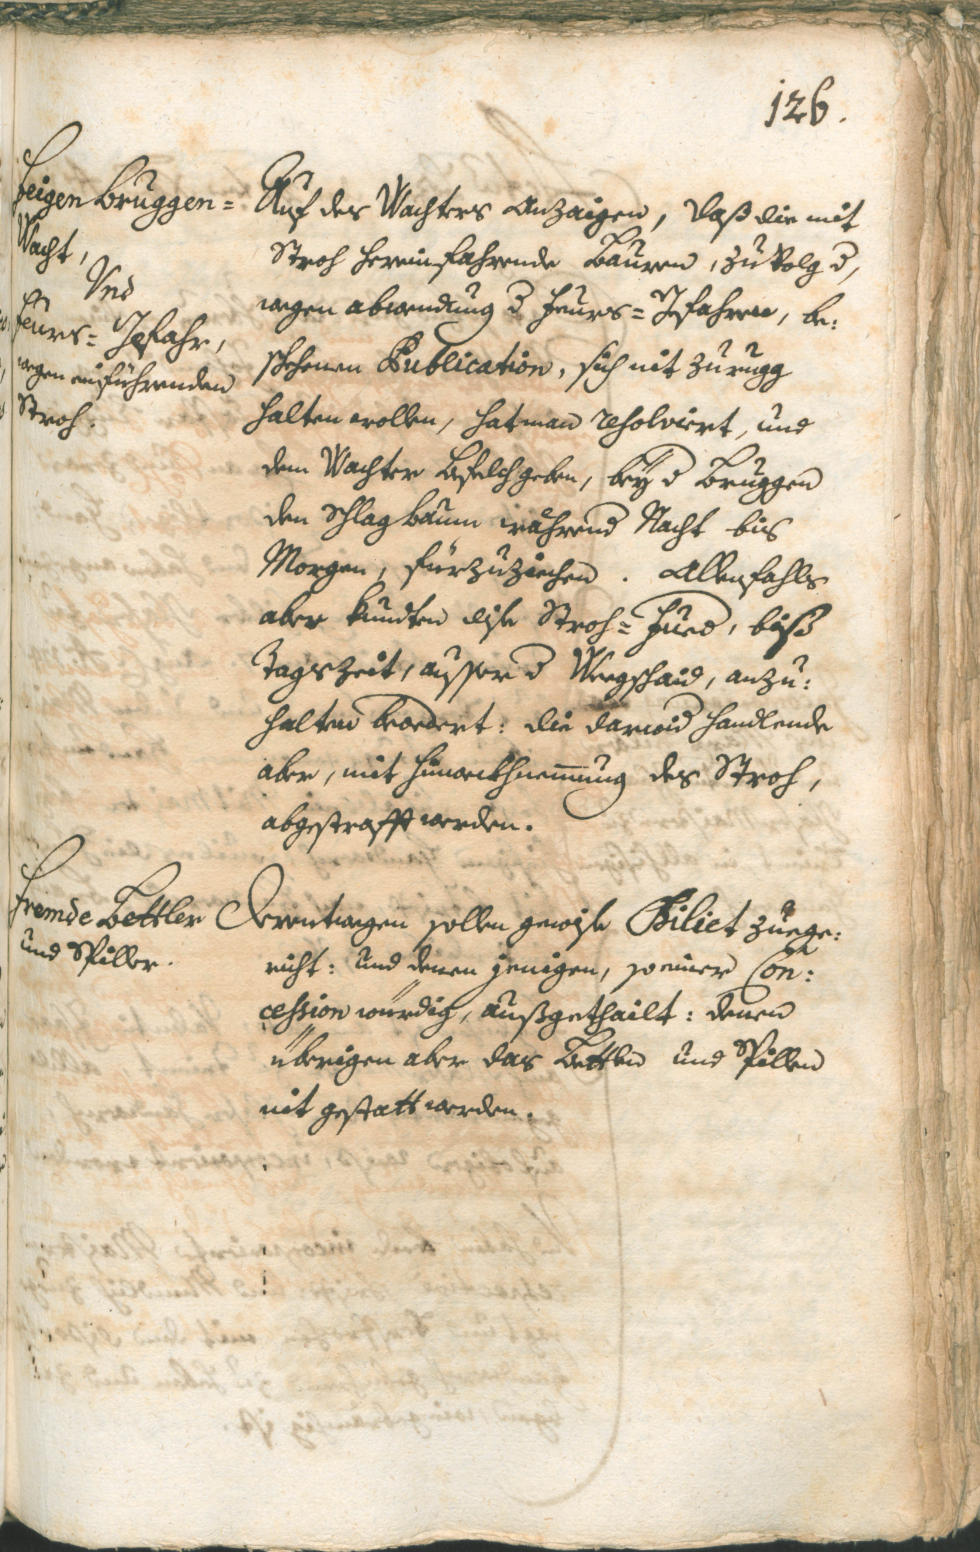 126.
Feigen Bruggen=
Wacht,
Und
Feurs=Gefahr,
wegen einführenden
Stroh.
Auf des Wachters Anzaigen, daß die mit
Stroh hereinfahrende Bauren, zu Volg d,
wegen abwendung d Feurs=Gefahren, be:
schehenen Publication, sich nit zurugg
halten wollen, hat man resolviert, und
dem Wachter Befelch geben, bey d Bruggen
den Schlagbaum während Nacht bis
Morgen, fürzuziechen. Allenfahls
aber kundten dise Stroh=Fued, biß
Tagszeit, ausser d Wegschaid, anzu:
halten beordert: die darwid handlende
aber, mit hinweckhnemung des Stroh,
abgestrafft werden.
Fremde Bettler
und Spiller.
Derentwegen sollen gewise Biliet zuege:
richt: und denen jenigen, so einer Con:
cession würdig, außgethailt: denen
übrigen aber das Bettlen und Spillen
nit gestatt werden.